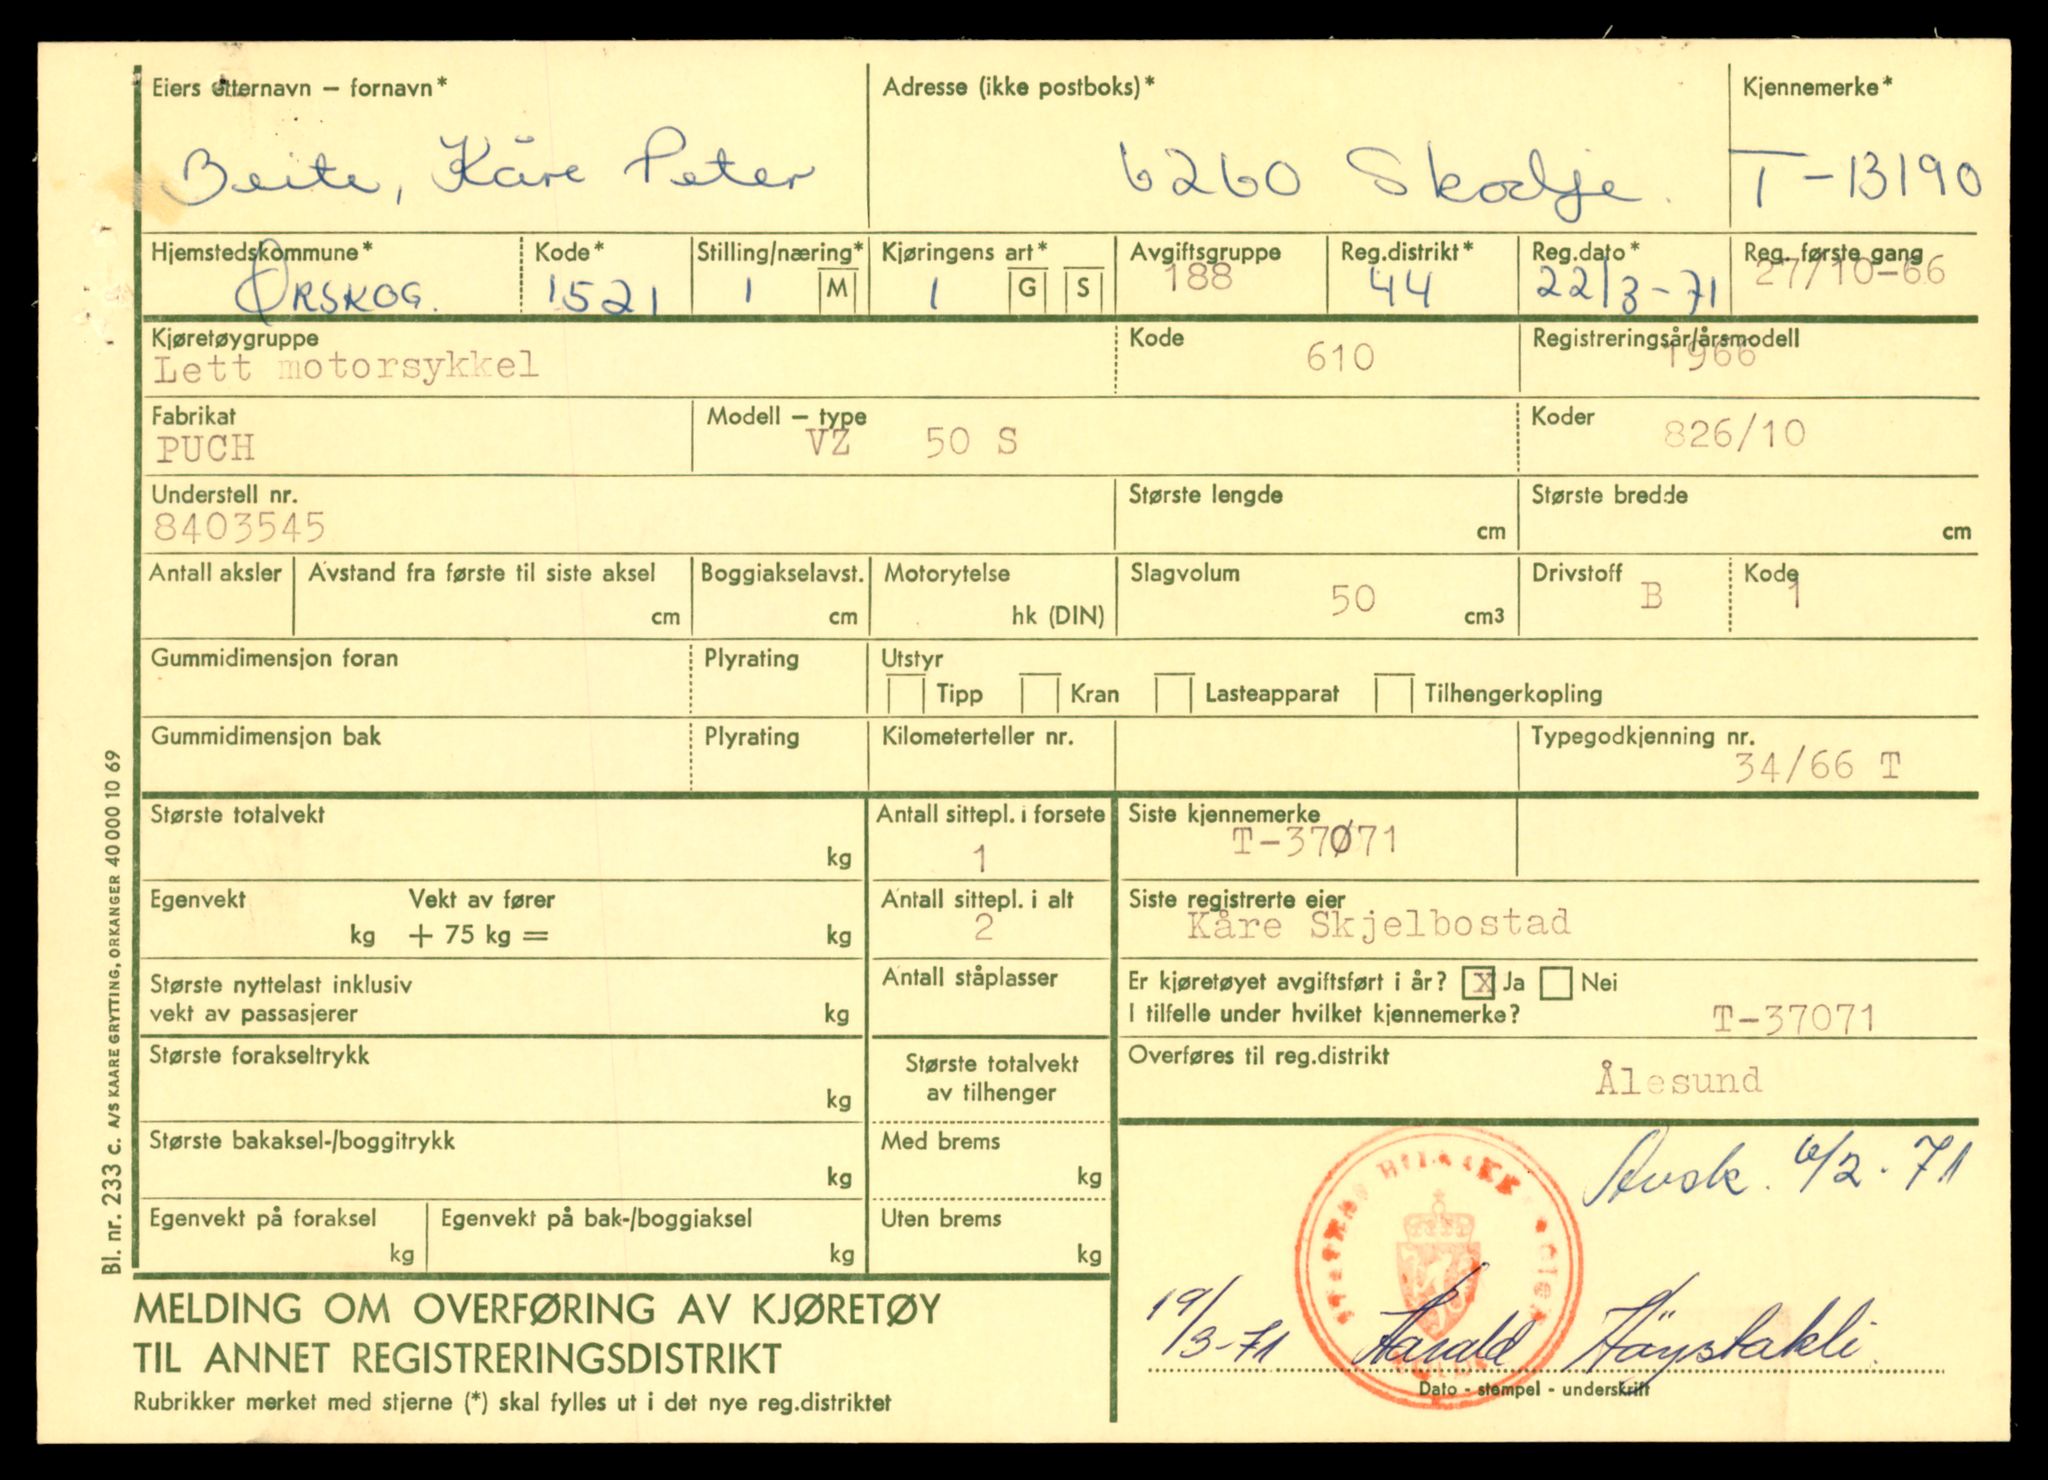 Eiers etternavn – fornavn* Adresse (ikke postboks)* Kjennemerke*
Beite, Kåre Peter 6260 Skodje. T-13190
Hjemstedskommune* Kode* Stilling/næring* Kjøringens art* Avgiftsgruppe Reg.distrikt* Reg.dato* Reg. første gang
ØRSKOG. 1521 1 M 1 G S 188 44 22/3-71 27/10-66
Kjøretøygruppe Kode Registreringsår/årsmodell
Lett motorsykkel 610 1966
Fabrikat Modell – type Koder
PUCH VZ 50 S 826/10
Understell nr. Største lengde Største bredde
8403545 cm cm
Antall aksler Avstand fra første til siste aksel Boggiakselavst. Motorytelse Slagvolum Drivstoff Kode
cm cm hk (DIN) 50 cm3 B 1
Gummidimensjon foran Plyrating Utstyr
Tipp Kran Lasteapparat Tilhengerkopling
Gummidimensjon bak Plyrating Kilometerteller nr. Typegodkjenning nr.
34/66 T
Største totalvekt Antall sittepl. i forsete Siste kjennemerke
kg 1 T-37071
Egenvekt Vekt av fører Antall sittepl. i alt Siste registrerte eier
kg + 75 kg = kg 2 Kåre Skjelbostad
Største nyttelast inklusiv Antall ståplasser Er kjøretøyet avgiftsført i år? X Ja Nei
vekt av passasjerer kg I tilfelle under hvilket kjennemerke? T-37071
Største forakseltrykk Største totalvekt Overføres til reg.distrikt
kg av tilhenger Ålesund
Største bakaksel-/boggitrykk Med brems
kg kg
Avsk. 6/2-71
Egenvekt på foraksel Egenvekt på bak-/boggiaksel Uten brems
kg kg kg
MELDING OM OVERFØRING AV KJØRETØY
TIL ANNET REGISTRERINGSDISTRIKT
19/3-71 Harald Höystakli
Dato - stempel - underskrift
Rubrikker merket med stjerne (*) skal fylles ut i det nye reg.distriktet
Bl. nr. 233 c. A/S KAARE GRYTTING, ORKANGER 40 000 10 69